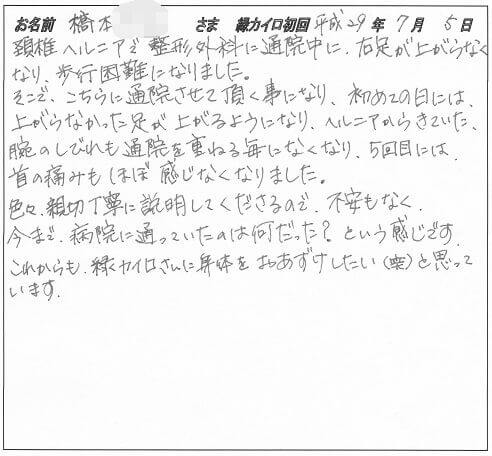 お名前 橋本 さま 縁カイロ初回 平成29年 7月 5日
頚椎ヘルニアで整形外科に通院中に、右足が上がらなく
なり、歩行困難になりました。
そこで、こちらに通院させて頂く事になり、初めての日には、
上がらなかった足が上がるようになり、ヘルニアからきていた、
腕のしびれも通院を重ねる毎になくなり、5回目には、
首の痛みもほぼ感じなくなりました。
色々、親切丁寧に説明してくださるので、不安もなく、
今まで、病院に通っていたのは何だった?という感じです。
これからも、縁カイロさんに身体をおあずけしたい(笑)と思って
います。